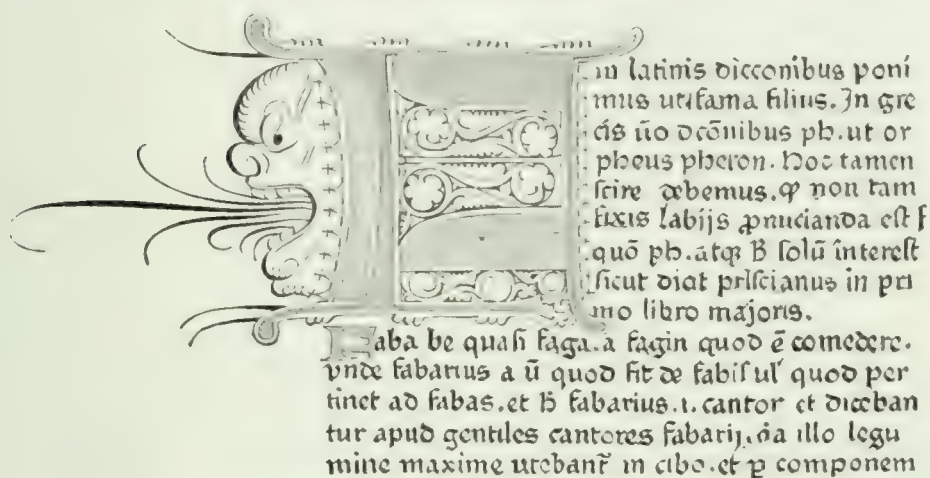 F in latinis dicconibus poni
mus ut fama filius. In gre
cis ũo dcõnibus ph. ut or
pheus pheron. Hoc tamen
scire debemus. ꝙ non tam
fixis labijs ꝓnuncianda est f
quõ ph. atqꝫ B solũ interest
sicut dicit priscianus in pri
mo libro majoris.
Faba be quasi faga. a fagin quod ẽ comedere.
vnde fabarius a ũ quod fit de fabis ul' quod per
tinet ad fabas. et ħ fabarius .i. cantor et diceban
tur apud gentiles cantores fabarij. illo legu
mine maxime utebant̃ in cibo. et ꝑ componem